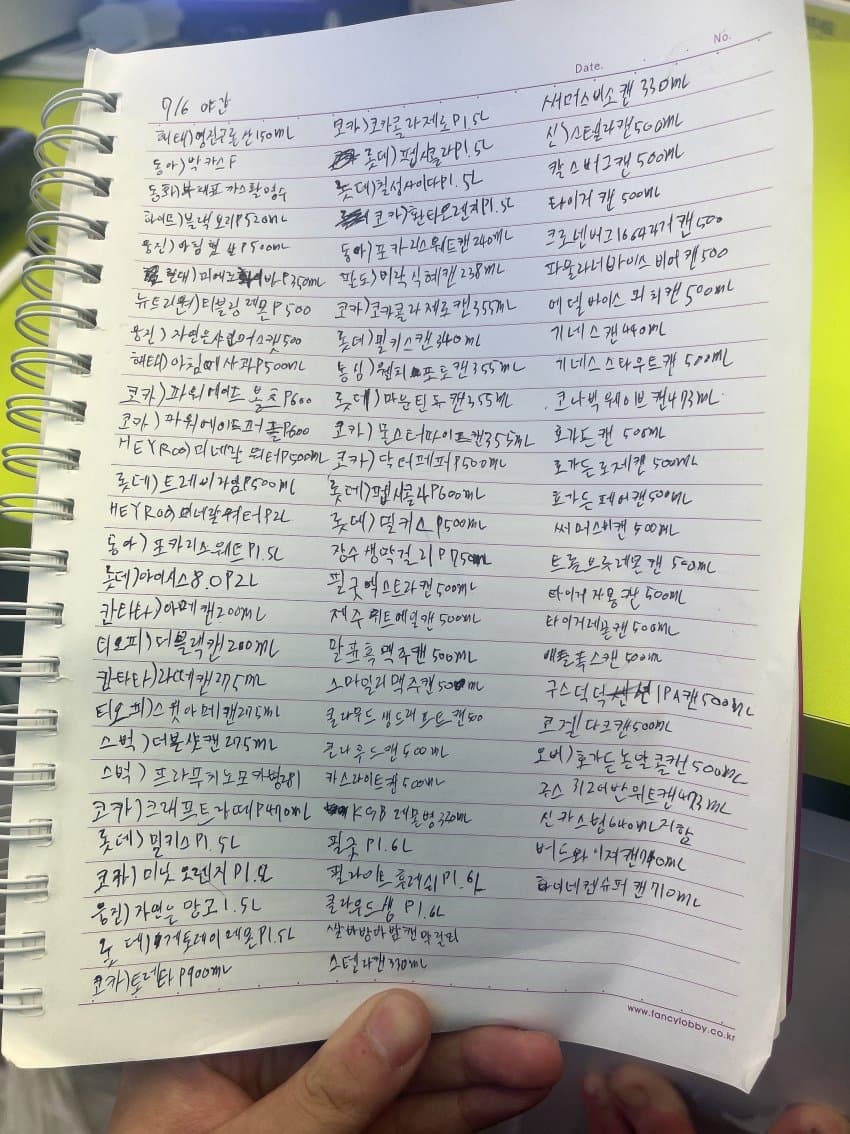 No.
Date.
7/6 야간
해태)영진구론산150mL
동아)박카스F
동화)부채표 까스활명수
하이트)블랙보리P520mL
웅진)아침햇살P500mL
현대)미에로화이바P350mL
뉴트리원)티블링레몬P500
웅진)자연은샤인머스캣500
해태)아침에사과P500mL
코카)파워에이드 P600
코카)파워에이드퍼플P600
HEYROO)미네랄워터P500mL
롯데)트레비라임P500mL
HEYROO)미네랄워터P2L
동아)포카리스웨트P1.5L
롯데)아이시스8.0P2L
칸타타)아메캔200mL
티오피)더블랙캔200mL
칸타타)라떼캔275mL
티오피)스윗아메캔275mL
스벅)더블샷캔275mL
스벅)프라푸치노모카병281
코카)크래프트라떼P470mL
롯데)밀키스P1.5L
코카)미닛오렌지P1.
웅진)자연은망고1.5L
롯데)게토레이레몬P1.5L
코카)토레타P900mL
코카)코카콜라제로P1.5L
롯데)펩시콜라P1.5L
롯데)칠성사이다P1.5L
코카)환타오렌지P1.5L
동아)포카리스웨트캔240mL
팔도)비락식혜캔238mL
코카)코카콜라제로캔355mL
롯데)밀키스캔340mL
농심)웰치포도캔355mL
롯데)마운틴듀캔355mL
코카)몬스터파이프캔355mL
코카)닥터페퍼P500mL
롯데)펩시콜라P600mL
롯데)밀키스P500mL
장수생막걸리P750mL
필굿엑스트라캔500mL
제주위트에일캔500mL
말표흑맥주캔500mL
스마일리맥주캔500mL
클라우드생드래프트캔500
코나루드캔500mL
카스라이트캔500mL
KGB레몬병330mL
필굿P1.6L
필라이트후레쉬P1.6L
클라우드생P1.6L
살바밤바밤캔막걸리
스텔라캔330mL
써머스비소캔330mL
신)스텔라캔500mL
칼스버그캔500mL
타이거캔500mL
크로넨버그1664라거캔500
파울라너바이스비어캔500
에델바이스뫼히캔500mL
기네스캔440mL
기네스스타우트캔500mL
코나빅웨이브캔473mL
호가든캔500mL
호가든로제캔500mL
호가든페어캔500mL
써머스비캔500mL
트롤브루레몬캔500mL
타이거자몽캔500mL
타이거레몬캔500mL
애플폭스캔500m
구스덕덕 IPA캔500mL
코젤다크캔500mL
오비)호가든논알콜캔500mL
구스312어반위트캔473mL
신카스병640mL저함
버드와이져캔740mL
하이네켄슈퍼캔710mL
www.fancylobby.co.kr